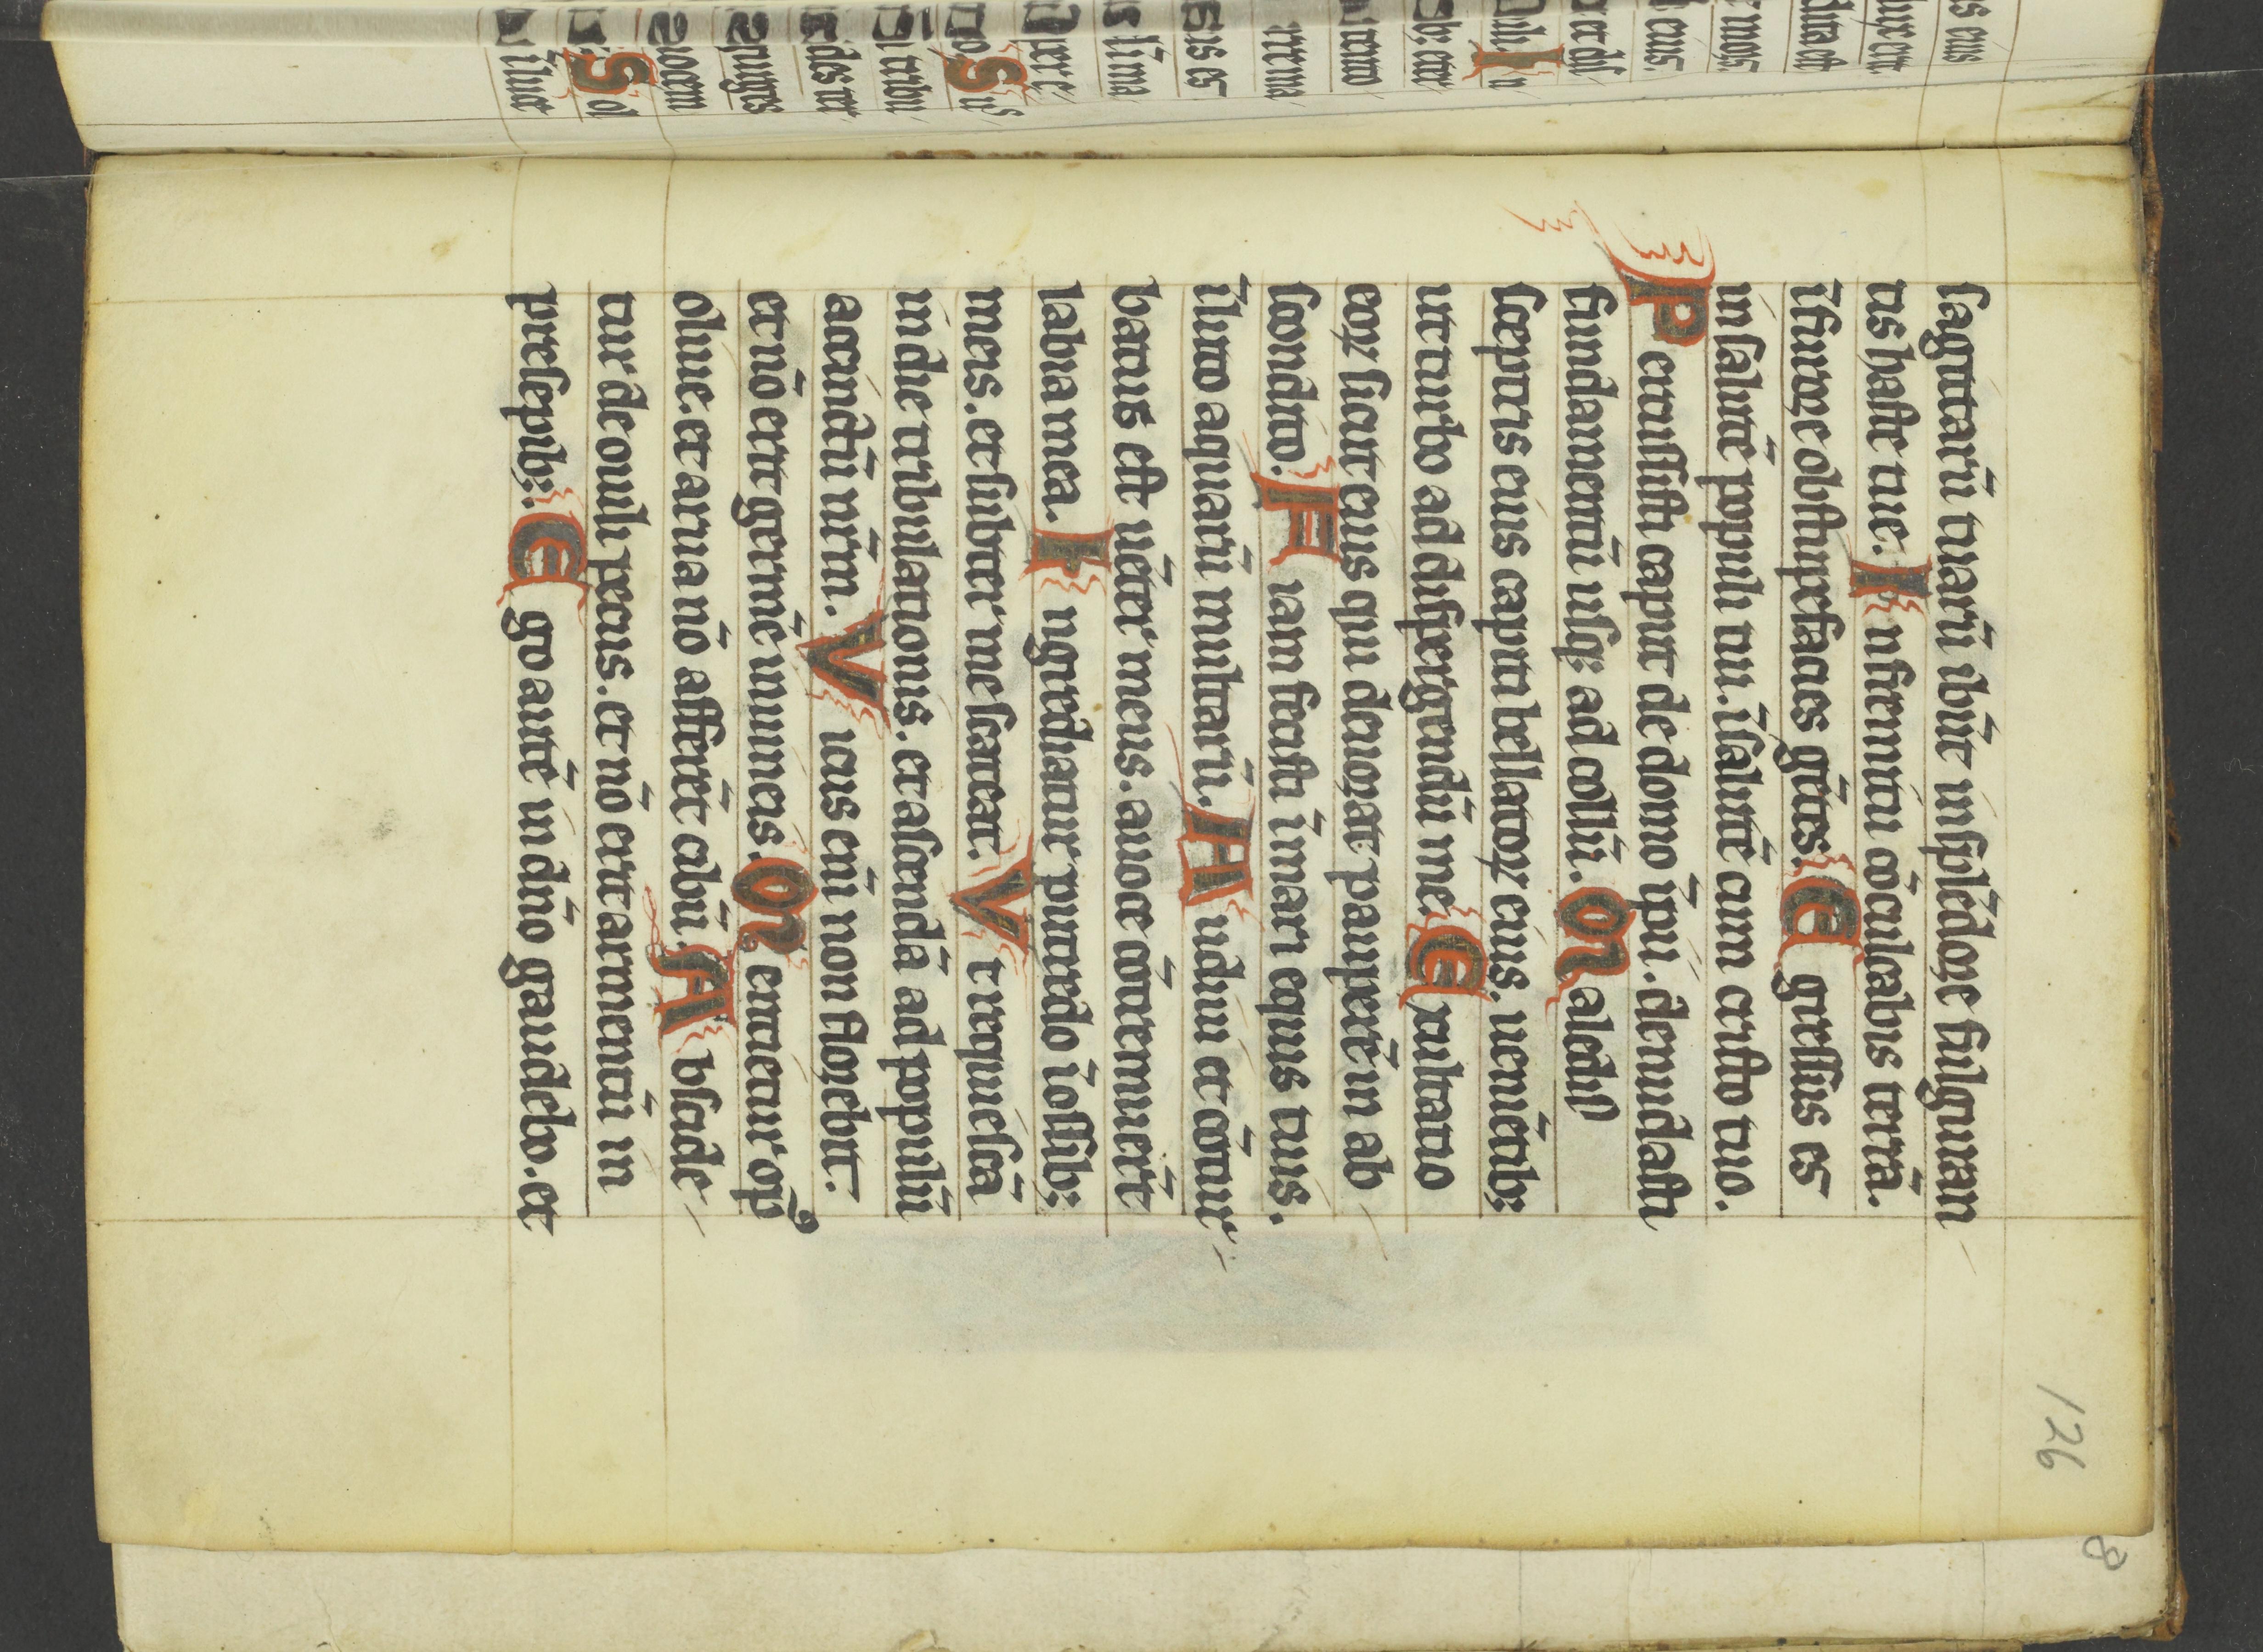 sagittarū tuarū ibūt in splēdore fulguran
tis haste tue. In fremitu cōculcabis terrā.
ī furore obstupefacies gētes. Egressus es
in salutē populi tui. ī salutē cum cristo tuo.
Percussisti caput de domo īpii. denudasti
fundamentū usq; ad collū. Maledixisti
sceptris eius capiti bellatoꝝ eius. ueniētib;
ut turbo ad dispergendū me. Exultatio
eoꝝ sicut eius qui deuorat pauperē in ab
scondito. Viam fecisti ī mari equis tuis.
ī luto aquarū multarū. Audiui et cōtur
batus est uēter meus. a uoce cōtremuerūt
labia mea. Ingrediatur putredo ī ossib;
meis. et subter me scateat. Vt requiescā
in die tribulationis. et ascendā ad populū
accinctū nr̄m. Ficus eni non florebit.
et nō erit germē in uineis. Mentietur opꝰ
oliue. et arua nō afferēt cibū. Abscide
tur de ouili pecus. et nō erit armentū in
presepib;. Ego autē in dn̄o gaudebo. et
126
8